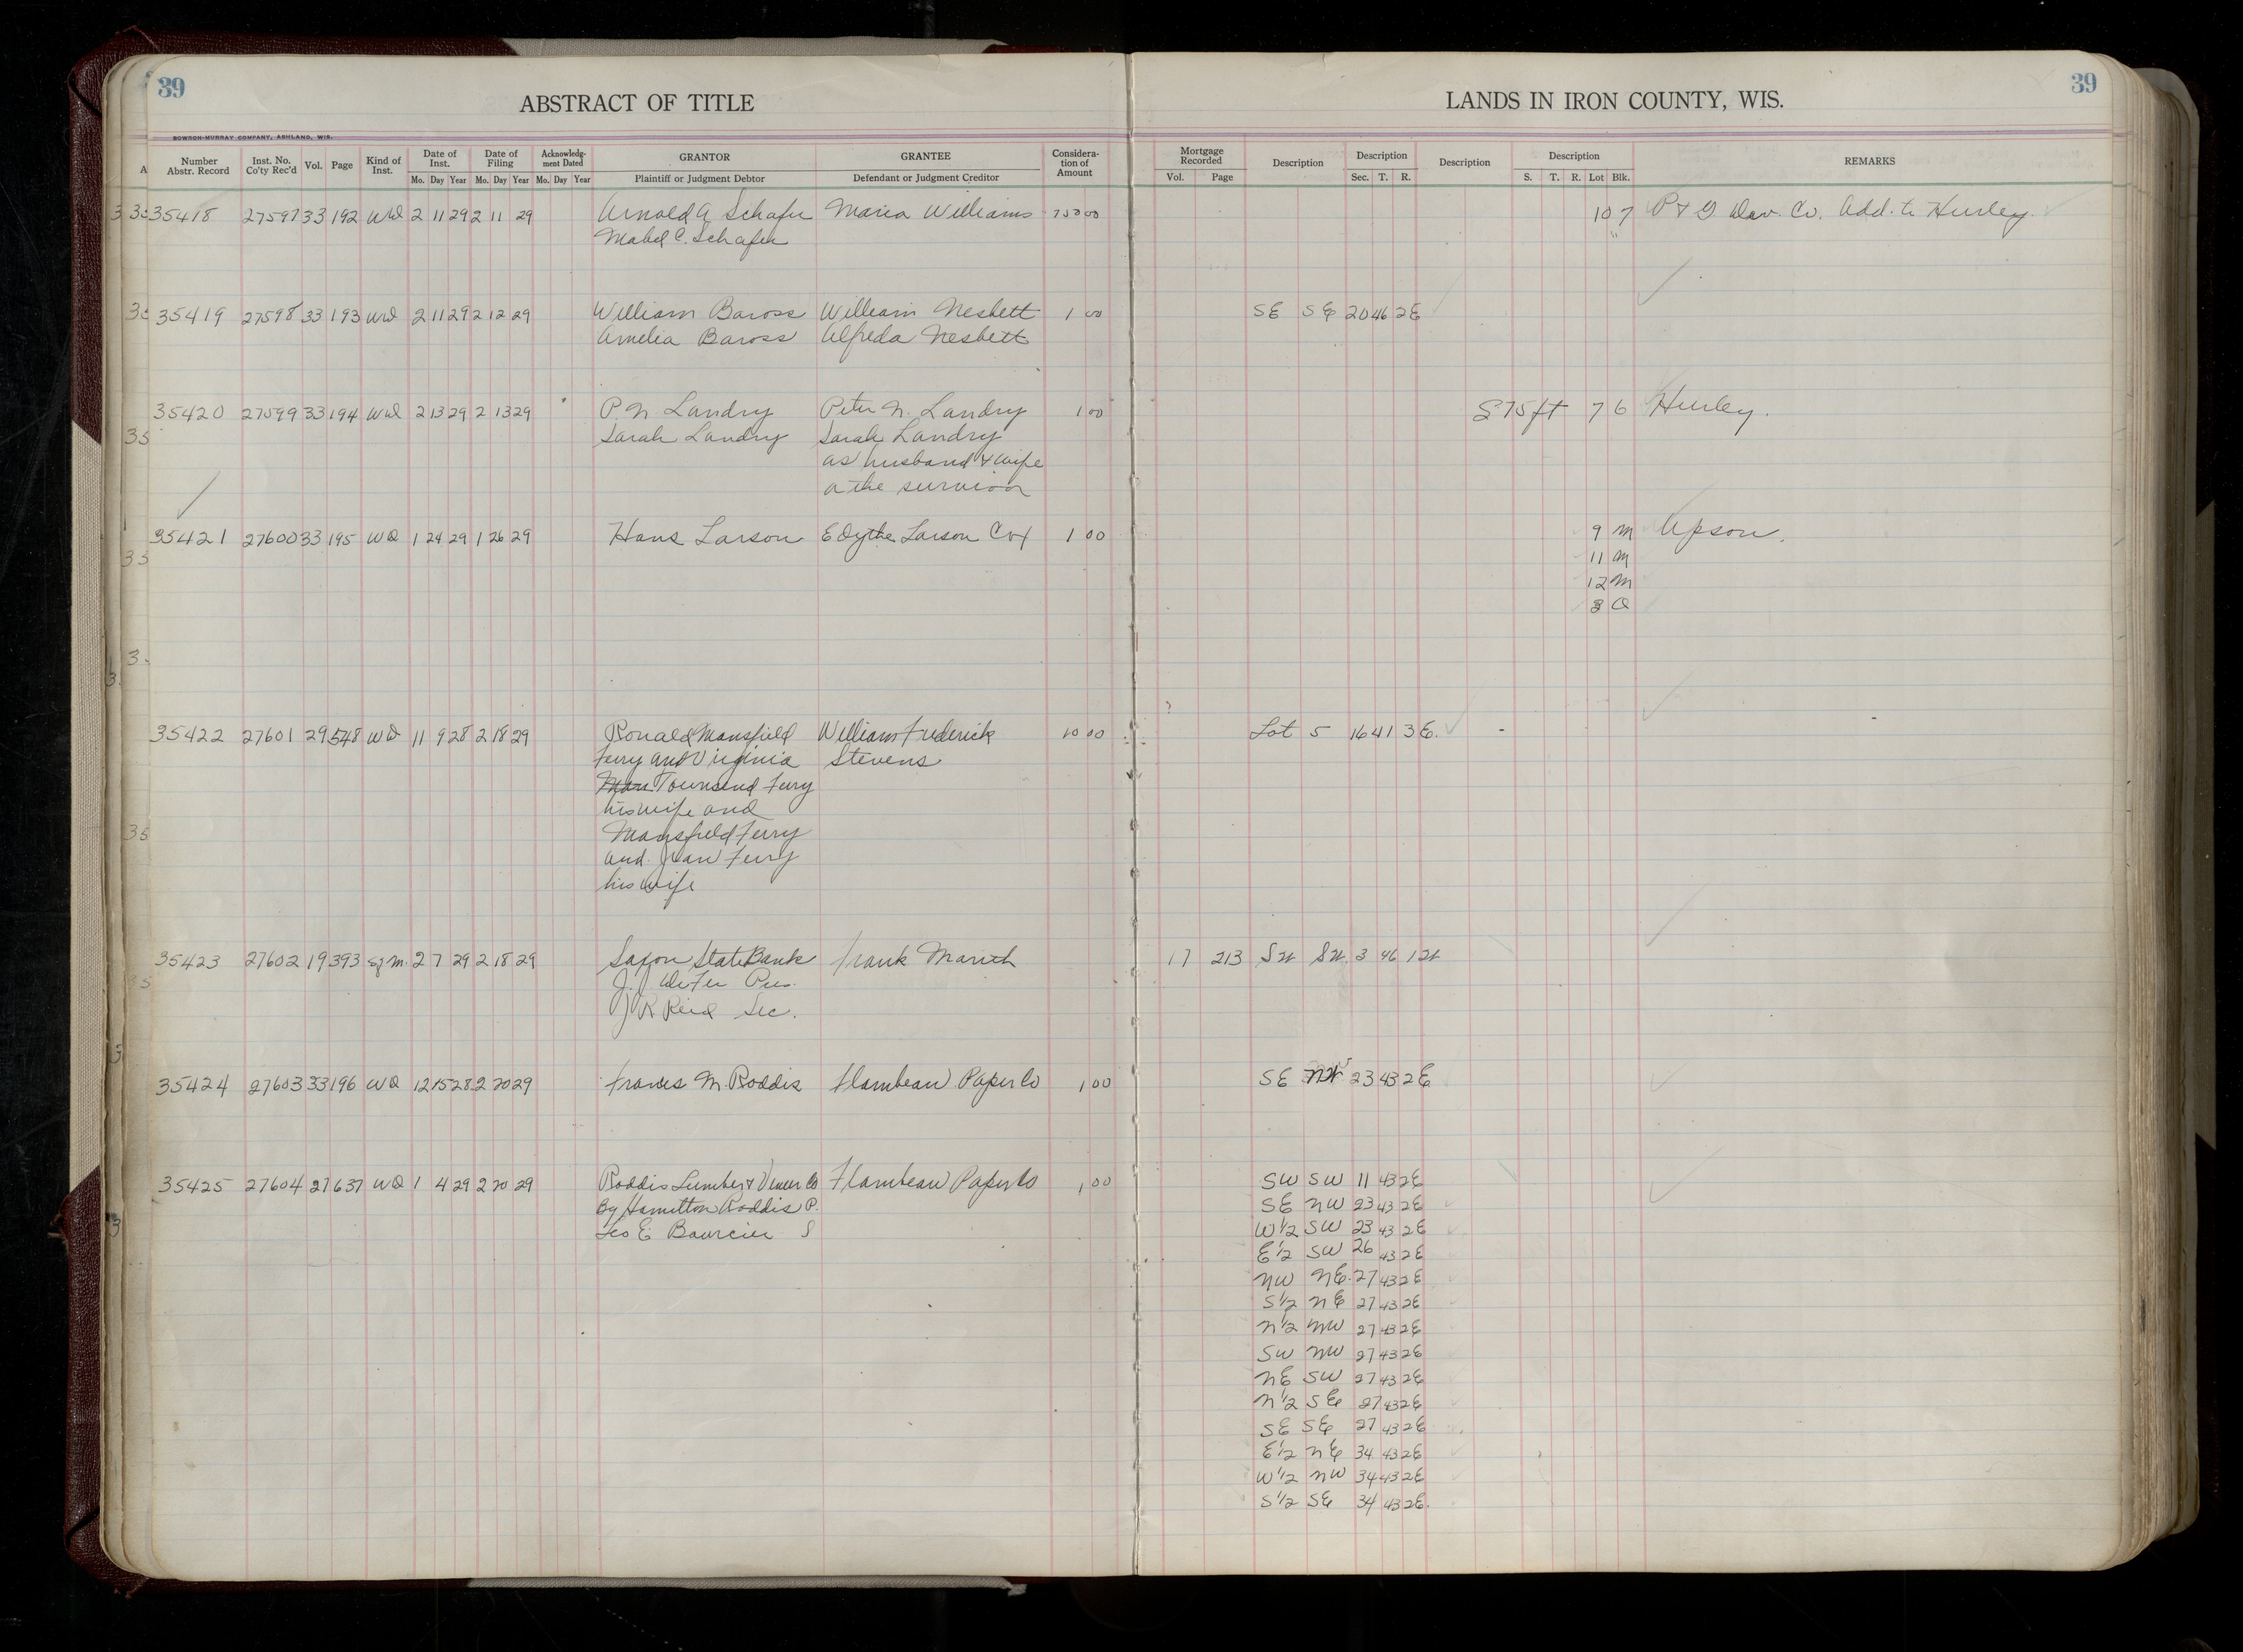 39
ABSTRACT OF TITLE
LANDS IN IRON COUNTY, WIS.
39
BOWRON-MURRAY COMPANY, ASHLAND, WIS.
Number Abstr. Record Inst. No. Co'ty Rec'd Vol. Page Kind of Inst. Date of Inst. Mo. Day Year Date of Filing Mo. Day Year Acknowledg-ment Dated Mo. Day Year GRANTOR Plaintiff or Judgment Debtor GRANTEE Defendant or Judgment Creditor Considera-tion of Amount Mortgage Recorded Vol. Page Description Description Sec. T. R. Description Description S. T. R. Lot Blk. REMARKS
35418 27597 33 192 WD 2 11 29 2 11 29 Arnold A Schafer Maria Williams 750 00 10 7 P & G Dev. Co. Add. to Hurley.
Mabel C. Schafer "
35419 27598 33 193 WD 2 11 29 2 12 29 William Baross William Nesbett 1 00 SE SE 20 46 2E
Amelia Baross Alfreda Nesbett
35420 27599 33 194 WD 2 13 29 2 13 29 P. N Landry Peter N. Landry 1 00 S 75 ft 7 6 Hurley.
Sarah Landry Sarah Landry
as husband & wife
a the survivor
35421 27600 33 195 WD 1 24 29 1 26 29 Hans Larson Edythe Larson Cox 1 00 9 M Upson.
11 M
12 M
3 O
35422 27601 29 548 WD 11 9 28 2 18 29 Ronald Mansfield William Frederick 10 00 Lot 5 16 41 3E.
Ferry and Virginia Stevens
Townsend Ferry
his wife and
Mansfield Ferry
and Jean Ferry
his wife
35423 27602 19 393 Sf M. 2 7 29 2 18 29 Saxon State Bank Frank 17 213 SW SW 3 46 1W
J. J. Pres.
J R Reid Sec.
35424 27603 33 196 WD 12 15 28 2 20 29 Frances M. Roddis Flambeau Paper Co 1 00 SE NW 23 43 2E
35425 27604 27 637 WD 1 4 29 2 20 29 Roddis Lumber & Veneer Co Flambeau Paper Co 1 00 SW SW 11 43 2E
By Hamilton Roddis P. SE NW 23 43 2E
Leo E. Bourcier S W 1/2 SW 23 43 2E
E 1/2 SW 26 43 2E
NW NE. 27 43 2E
S 1/2 NE 27 43 2E
N 1/2 NW 27 43 2E
SW NW 27 43 2E
NE SW 27 43 2E
N 1/2 SE 27 43 2E
SE SE 27 43 2E
E 1/2 NE 34 43 2E
W 1/2 NW 34 43 2E
S 1/2 SE 34 43 2E.